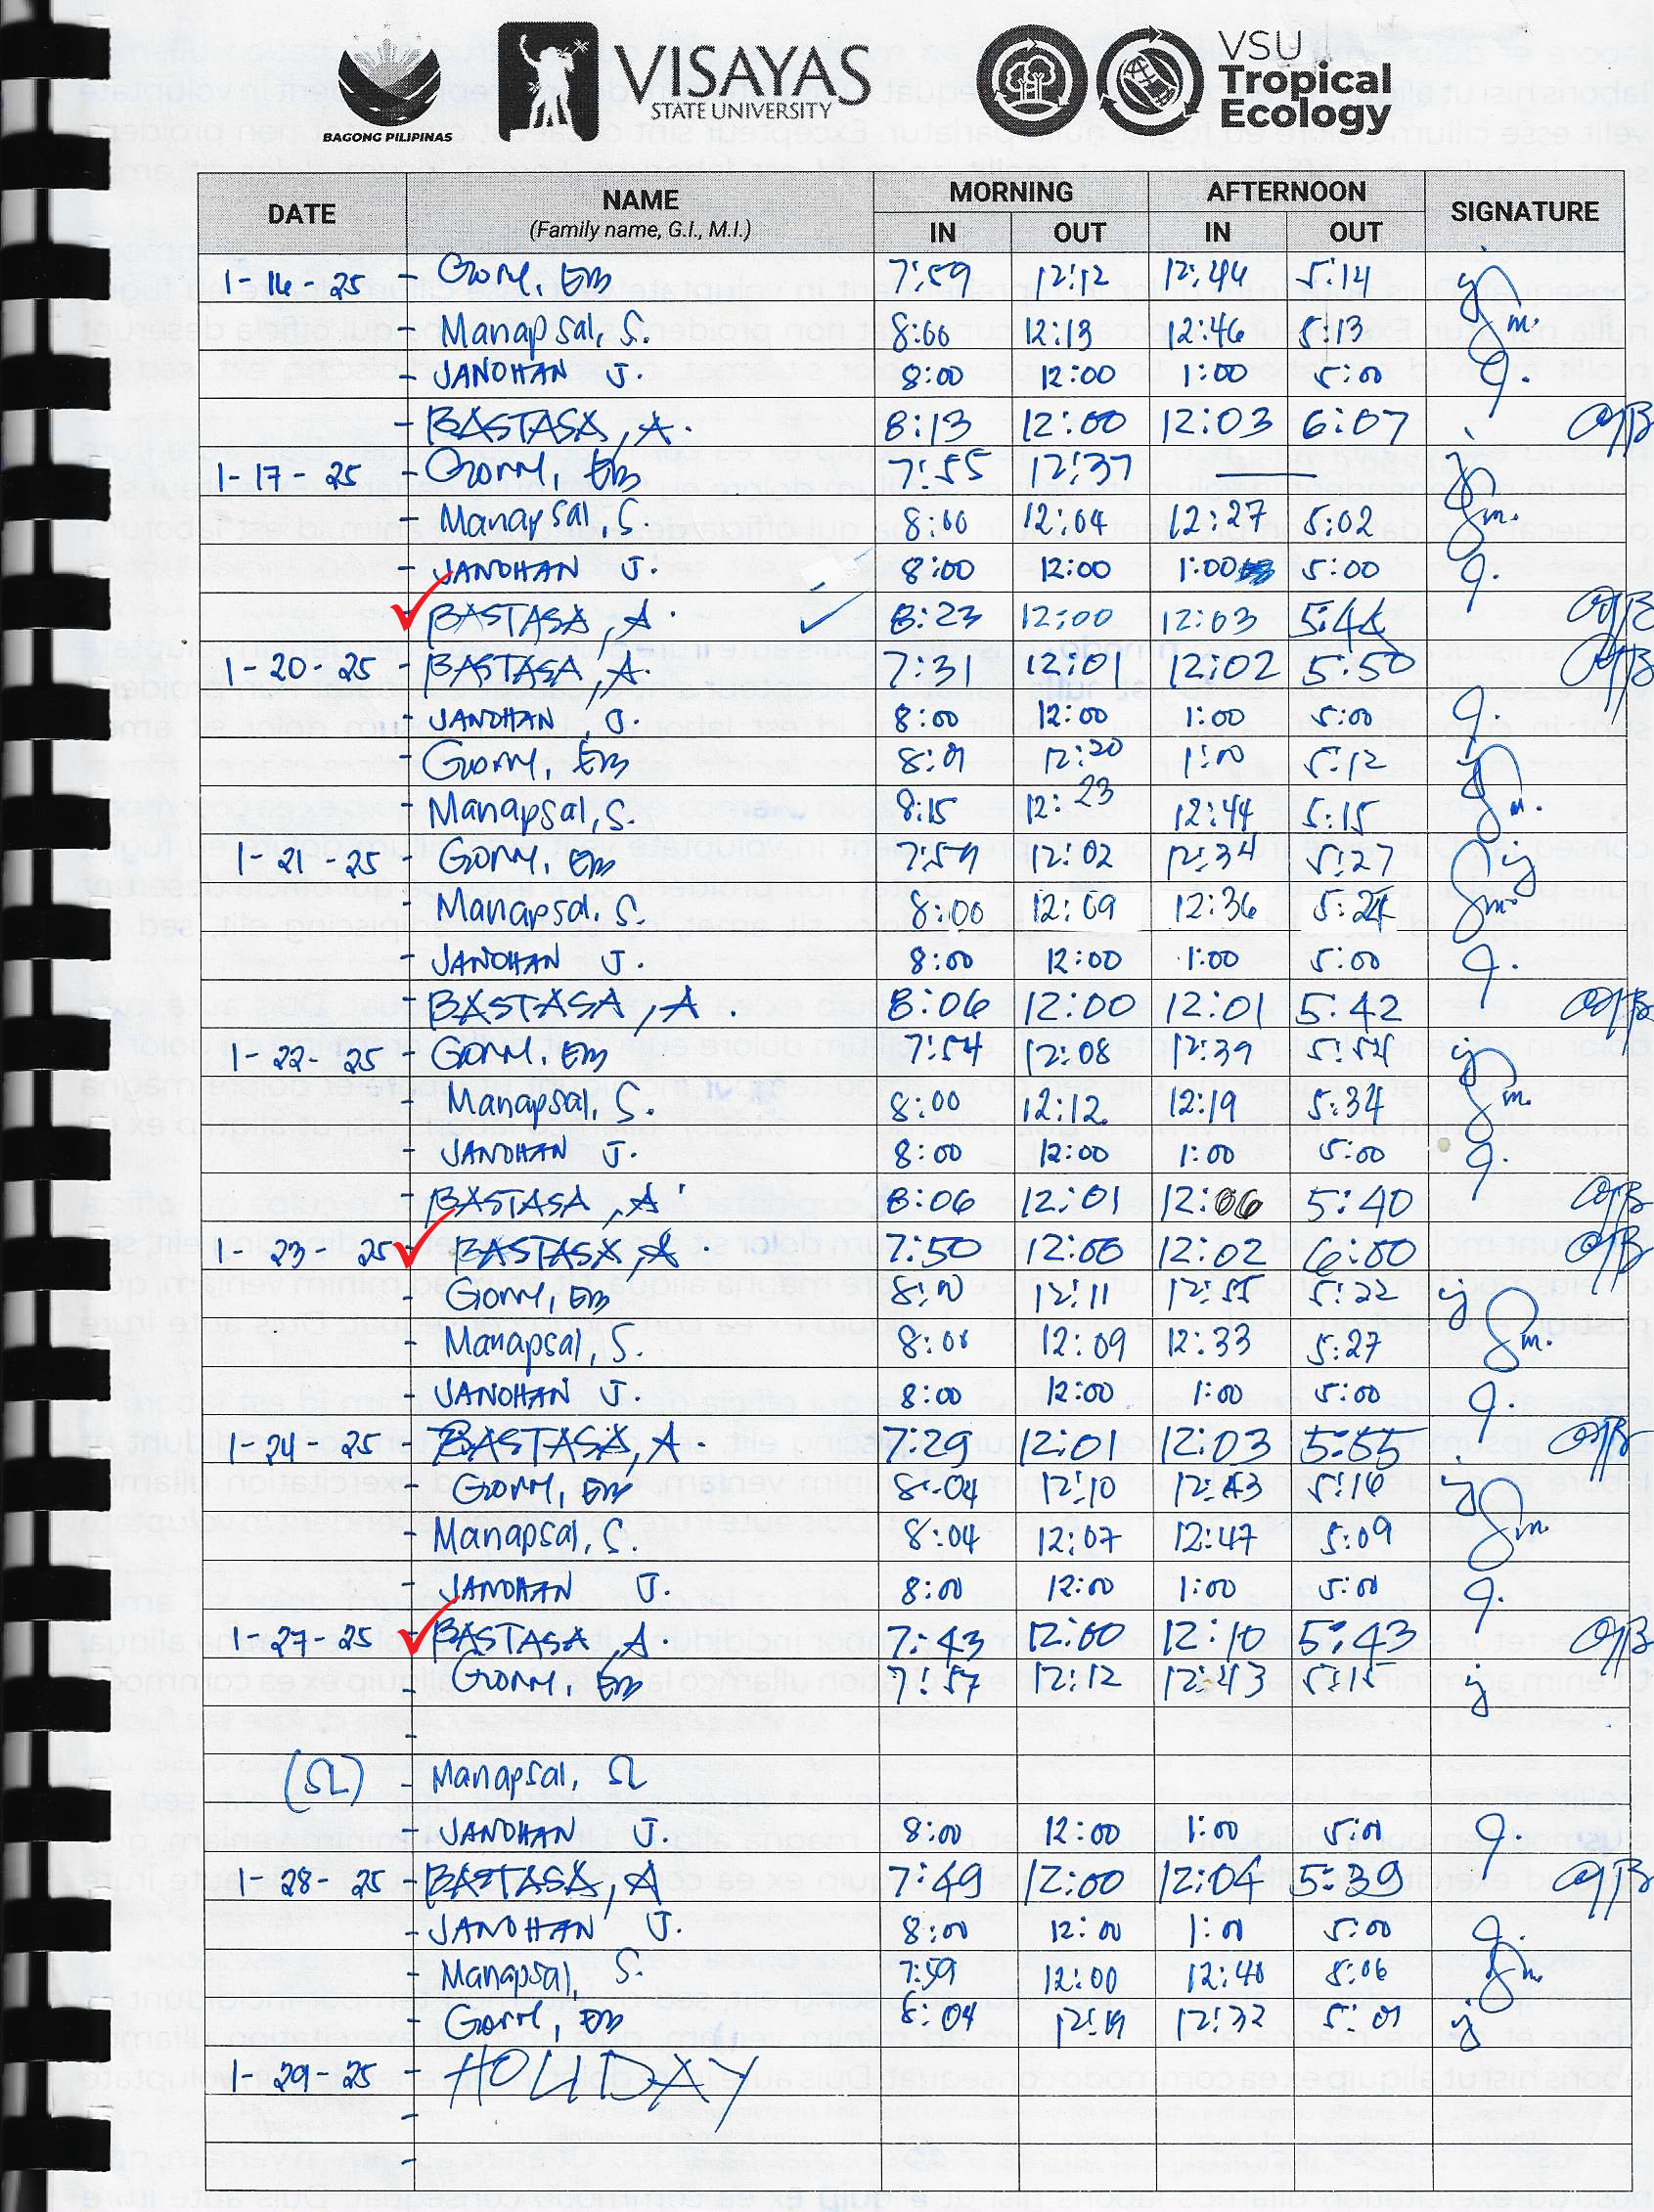 BAGONG PILIPINAS
VISAYAS
STATE UNIVERSITY
VSU
Tropical
Ecology
DATE NAME (Family name, G.I., M.I.) MORNING IN OUT AFTERNOON IN OUT SIGNATURE
1-16-25 - Gorm, Em 7:59 12:12 12:46 5:14
- Manapsal, S. 8:00 12:13 12:46 5:13
- JANOHAN J. 8:00 12:00 1:00 5:00
- BASTASA, A. 8:13 12:00 12:03 6:07
1-17-25 - Gorm, Em 7:55 12:37 —
- Manapsal, S. 8:00 12:04 12:27 5:02
- JANOHAN J. 8:00 12:00 1:00 5:00
BASTASA, A. 8:23 12:00 12:03 5:44
1-20-25 - BASTASA, A. 7:31 12:01 12:02 5:50
- JANOHAN, J. 8:00 12:00 1:00 5:00
- Gorm, Em 12:20 1:00 5:12
- Manapsal, S. 8:15 12:23 12:44 5:15
1-21-25 - Gorm, Em 7:59 12:02 12:34 5:27
- Manapsal, S. 8:00 12:09 12:36 5:24
- JANOHAN J. 8:00 12:00 1:00 5:00
- BASTASA, A. 8:06 12:00 12:01 5:42
1-22-25 - Gorm, Em 7:54 12:08 12:39 5:54
- Manapsal, S. 8:00 12:12 12:19 5:34
- JANOHAN J. 8:00 12:00 1:00 5:00
- BASTASA, A 8:06 12:01 12:06 5:40
1-23-25 BASTASA, A. 7:50 12:00 12:02 6:00
- Gorm, Em 8:00 12:11 5:22
- Manapsal, S. 12:09 12:33 5:27
- JANOHAN J. 8:00 12:00 1:00 5:00
1-24-25 BASTASA, A. 7:29 12:01 12:03 5:55
- Gorm, Em 8:04 12:10 12:43 5:16
- Manapsal, S. 8:04 12:07 12:47 5:09
- JANOHAN J. 8:00 12:00 1:00 5:00
1-27-25 - BASTASA, A. 7:43 12:00 12:10 5:43
- Gorm, Em 7:57 12:12 12:43 5:15
-
(SL) - Manapsal, SL
- JANOHAN J. 8:00 12:00 1:00 5:00
1-28-25 - BASTASA, A 7:49 12:00 12:04 5:39
- JANOHAN J. 8:00 12:00 1:00 5:00
- Manapsal, S. 7:59 12:00 12:40 5:06
- Gorm, Em 8:04 12:19 12:32 5:01
1-29-25 - HOLIDAY
-
-